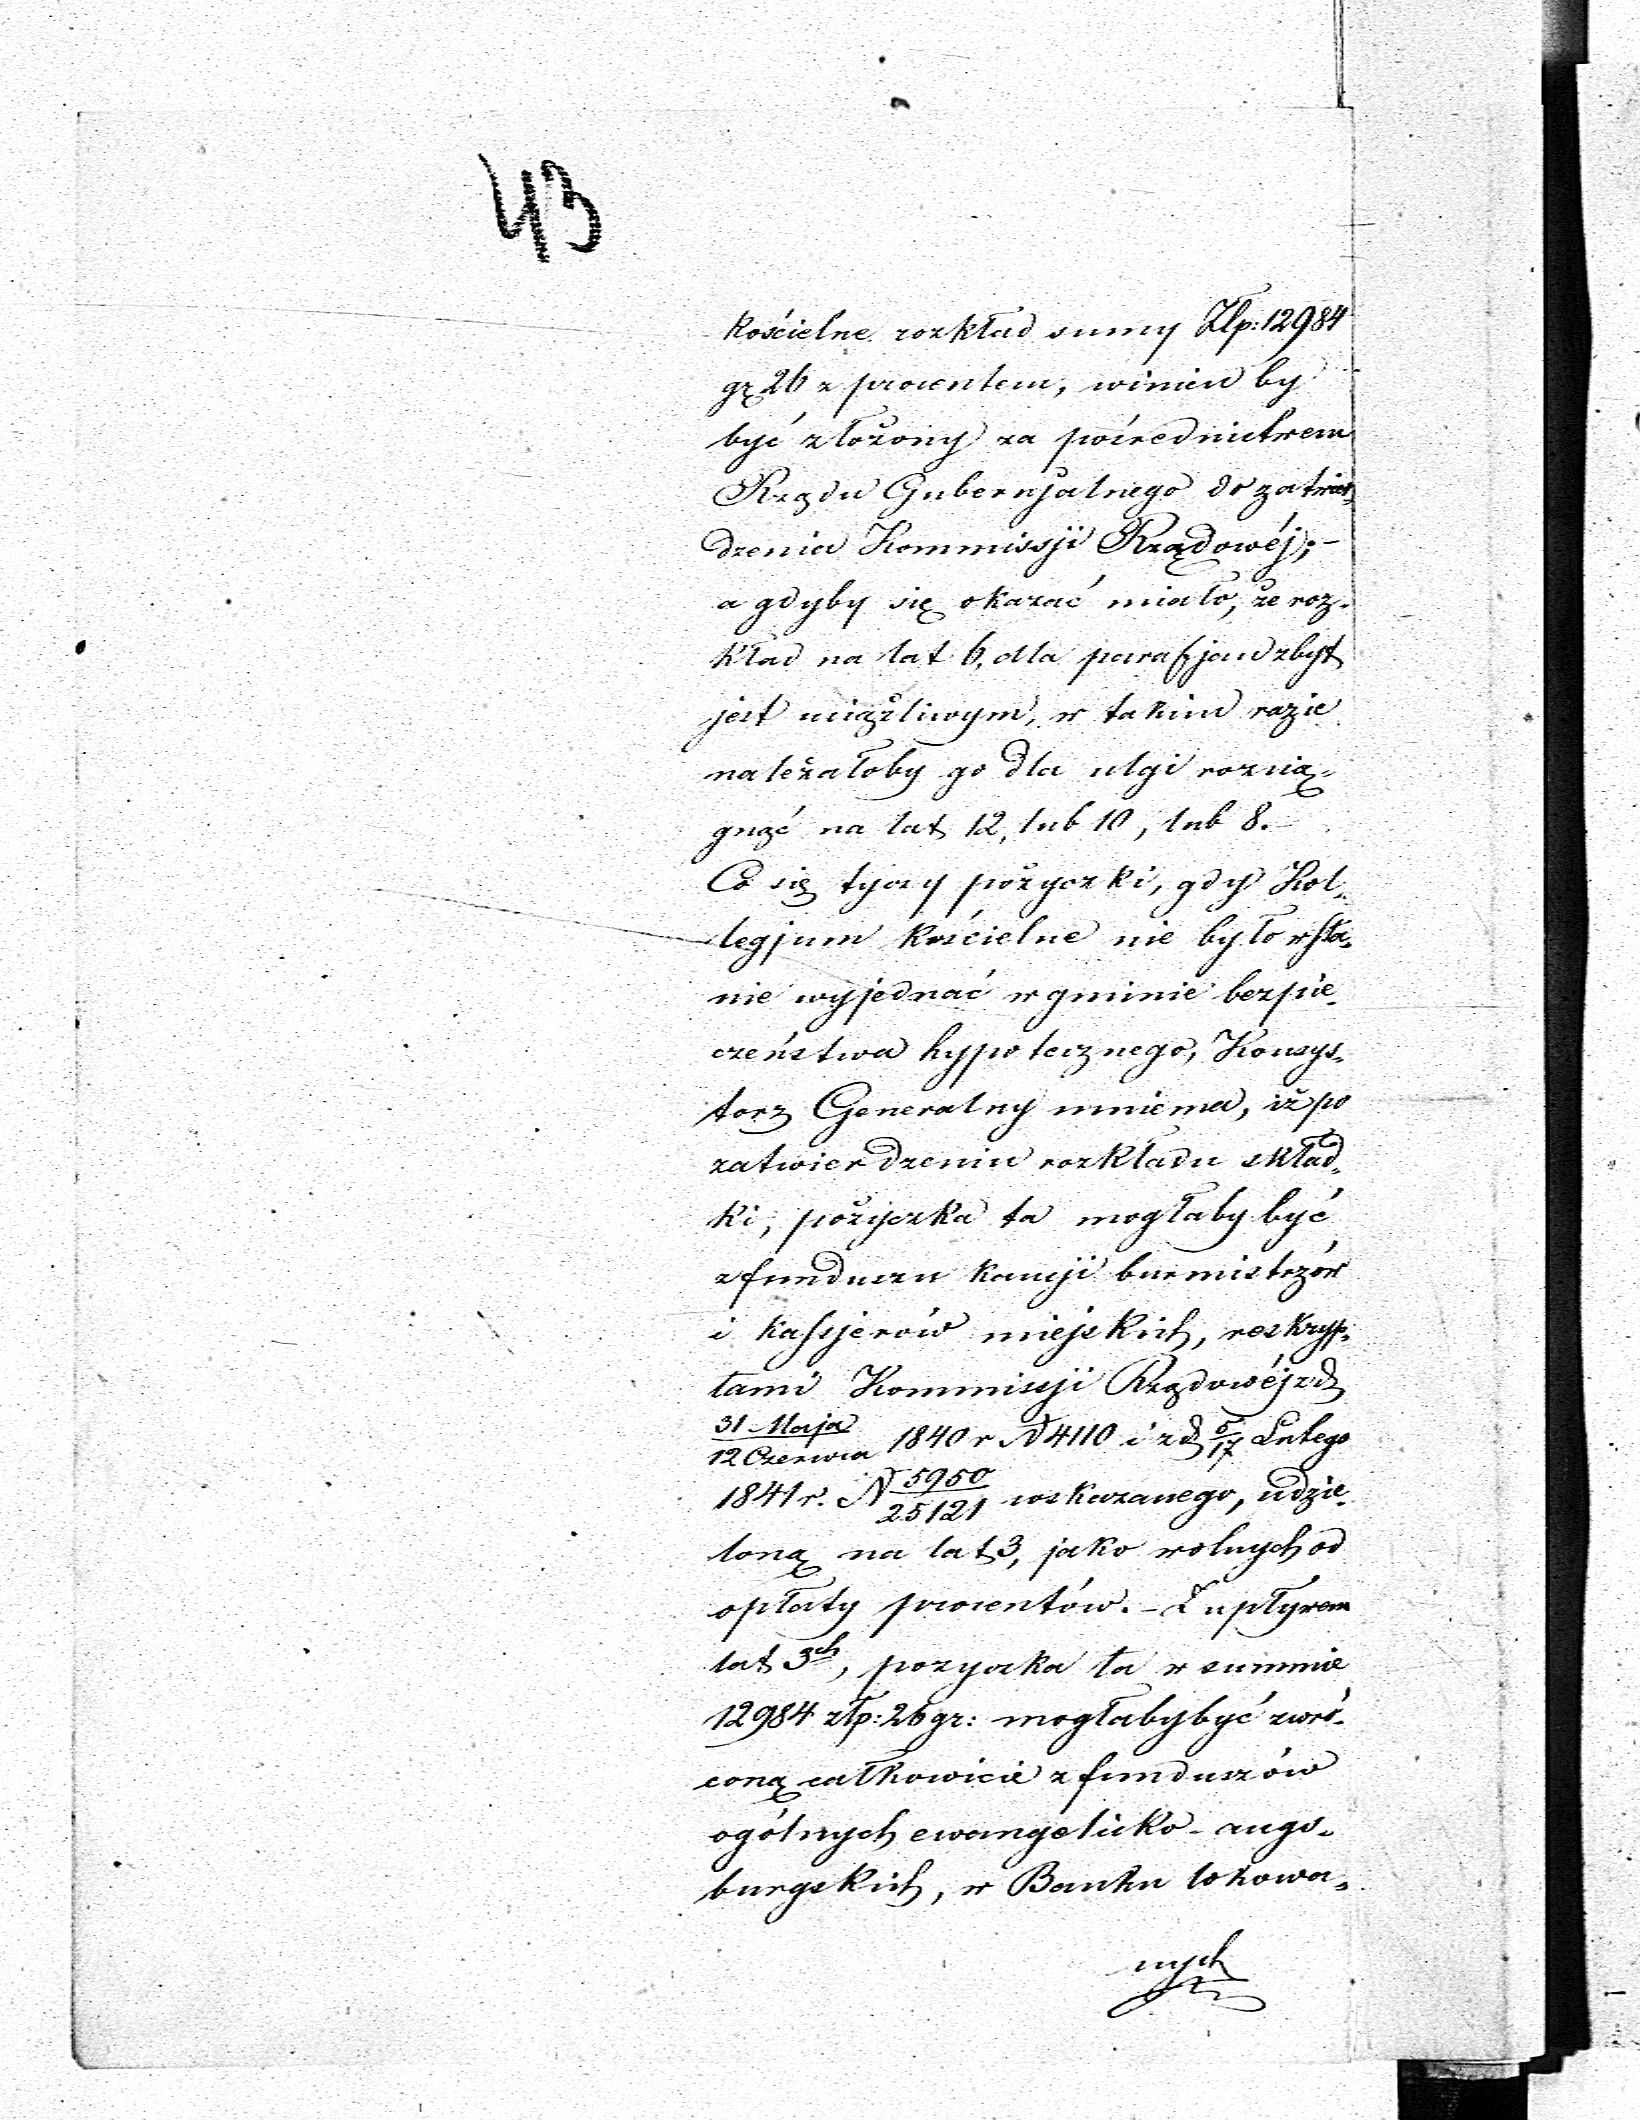 43
kościelne rozkład sumy Złp: 12984
gr 26 z procentem, winien by
być złożony za pośrednictwem
Rządu Gubernjalnego do zatwier-
dzenia Kommissji Rządowéj; -
a gdyby się okazać miało, że roz-
kład na lat 6, dla parafjan zbyt
jest uciążliwym, w takim razie
należałoby go dla ulgi rozcią-
gnąć na lat 12, lub 10, lub 8.
Co się tyczy pożyczki, gdy Kol-
legjum kościelne nie było w sta-
nie wyjednać w gminie bezpie-
czeństwa hypotecznego, Konsys-
torz Generalny mniema, iż po
zatwierdzeniu rozkładu skład-
ki, pożyczka ta mogłaby być
z funduszu kaucji burmistrzów
i kassjerów miejskich, reskryp-
tami Kommissji Rządowéj z d
31 Maja / 12 Czerwca 1840 r N 4110 i z d 5/17 Lutego
1841 r. N 5950/25121 wskazanego, udzie-
loną na lat 3, jako wolnych od
opłaty procentów. - Z upływem
lat 3ch, pozyczka ta w summie
12984 złp: 26 gr: mogłaby być zwró-
coną całkowicie z funduszów
ogólnych ewangelicko-augs-
burgskich, w Banku lokowa-
nych